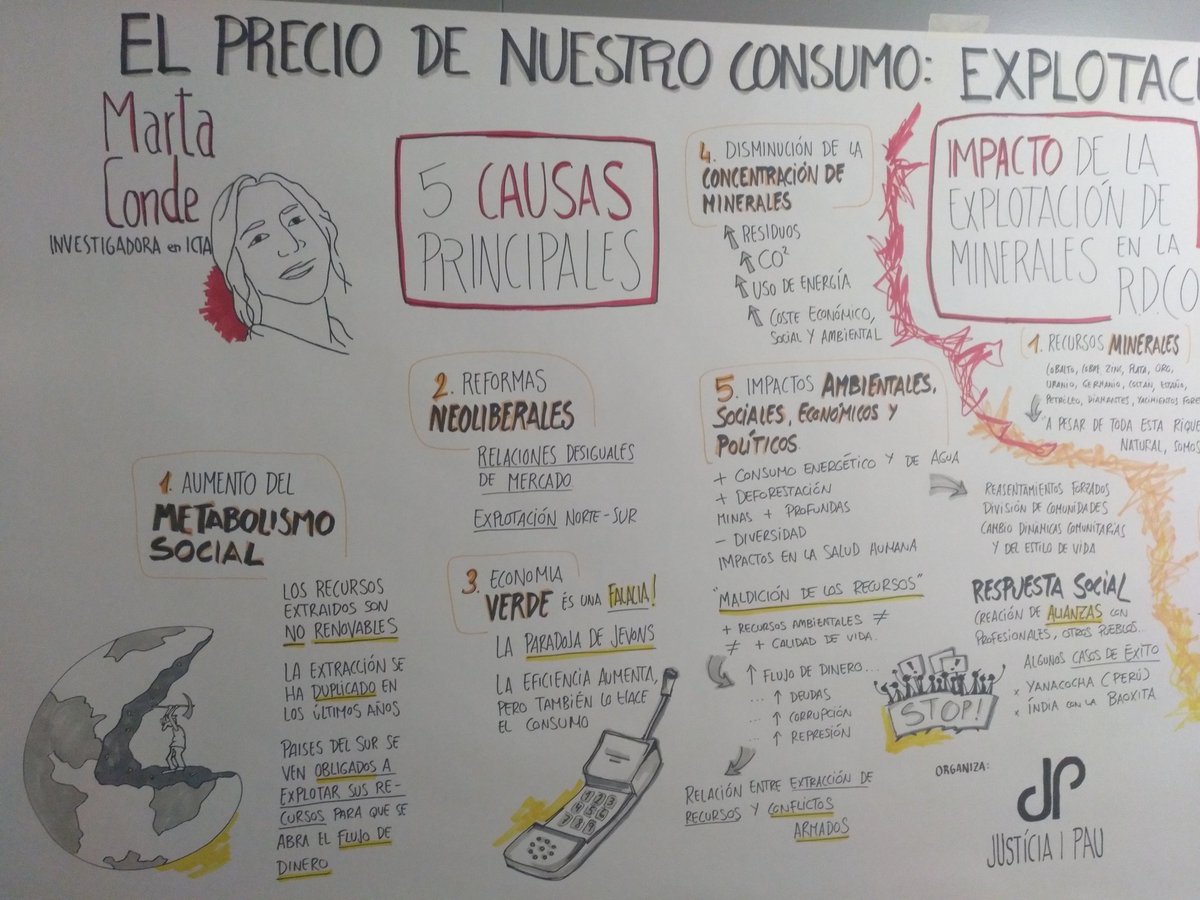 EL PRECIO DE NUESTRO CONSUMO: EXPLOTAC
Marta
Conde
INVESTIGADORA en ICTA
5 CAUSAS
PRINCIPALES
1. AUMENTO DEL
METABOLISMO
SOCIAL
LOS RECURSOS
EXTRAIDOS SON
NO RENOVABLES
LA EXTRACCIÓN SE
HA DUPLICADO EN
LOS ÚLTIMOS AÑOS
PAISES DEL SUR SE
VEN OBLIGADOS A
EXPLOTAR SUS RE-
CURSOS PARA QUE SE
ABRA EL FLUJO DE
DINERO
2. REFORMAS
NEOLIBERALES
RELACIONES DESIGUALES
DE MERCADO
EXPLOTACIÓN NORTE-SUR
3. ECONOMIA
VERDE ÉS UNA FALACIA!
LA PARADOJA DE JEVONS
LA EFICIENCIA AUMENTA,
PERO TAMBIÉN LO HACE
EL CONSUMO
1 2 3
4 5 6
7 8 9
4. DISMINUCIÓN DE LA
CONCENTRACIÓN DE
MINERALES
↑ RESIDUOS
↑ CO²
↑ USO DE ENERGÍA
↑ COSTE ECONÓMICO,
SOCIAL Y AMBIENTAL
5. IMPACTOS AMBIENTALES,
SOCIALES, ECONÓMICOS Y
POLÍTICOS
+ CONSUMO ENERGÉTICO Y DE AGUA
+ DEFORESTACIÓN
MINAS + PROFUNDAS
- DIVERSIDAD
IMPACTOS EN LA SALUD HUMANA
"MALDICIÓN DE LOS RECURSOS"
+ RECURSOS AMBIENTALES ≠
≠ + CALIDAD DE VIDA.
↑ FLUJO DE DINERO...
... ↑ DEUDAS
... ↑ CORRUPCIÓN
... ↑ REPRESIÓN
RELACIÓN ENTRE EXTRACCIÓN DE
RECURSOS Y CONFLICTOS
ARMADOS
REASENTAMIENTOS FORZADOS
DIVISIÓN DE COMUNIDADES
CAMBIO DINÁMICAS COMUNITARIAS
Y DEL ESTILO DE VIDA
RESPUESTA SOCIAL
CREACIÓN DE ALIANZAS CON
PROFESIONALES, OTROS PUEBLOS...
ALGUNOS CASOS DE ÉXITO
× YANACOCHA (PERÚ)
× ÍNDIA CON LA BAOXITA
STOP!
ORGANIZA:
JP
JUSTÍCIA I PAU
IMPACTO DE LA
EXPLOTACIÓN DE
MINERALES EN LA
R.D.CO
1. RECURSOS MINERALES
COBALTO, COBRE, ZINC, PLATA, ORO,
URANIO, GERMANIO, COLTÁN, ESTAÑO,
PETRÓLEO, DIAMANTES, YACIMIENTOS FORE
"A PESAR DE TODA ESTA RIQUE
NATURAL, SOMOS